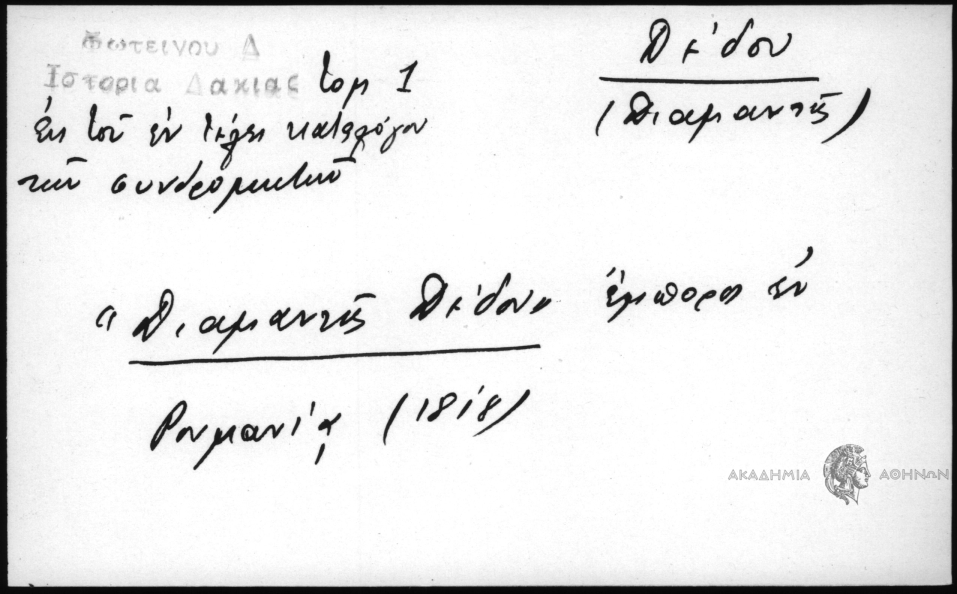 Φωτεινου Δ
Ιστορια Δακιας τομ 1
Ἐκ τοῦ ἐν τέλει καταλόγου
τῶν συνδρομητῶν
Δέδου
(Διαμαντῆς)
"Διαμαντῆς Δέδου" ἔμπορος ἐν
Ρουμανίᾳ (1818)
ΑΚΑΔΗΜΙΑ ΑΘΗΝΩΝ